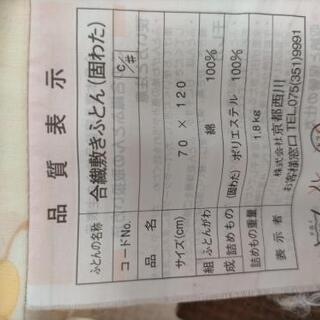 品質表示
ふとんの名称 合繊敷きふとん(固わた)
コードNo. C/#
品名
サイズ(cm) 70 × 120
組成 ふとんがわ 綿 100%
詰めもの (固わた) ポリエステル 100%
詰めもの重量 1.8kg
表示者 株式会社京都西川
お客様窓口 TEL.075(351)9991